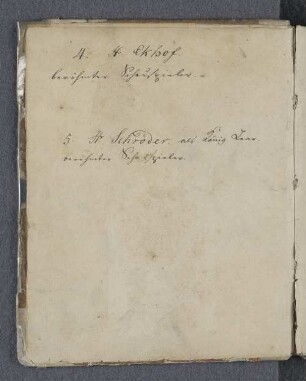 4. H Ekhof
berühmter Schauspieler.
5 Hr Schröder als König Lear
berühmter Schauspieler.